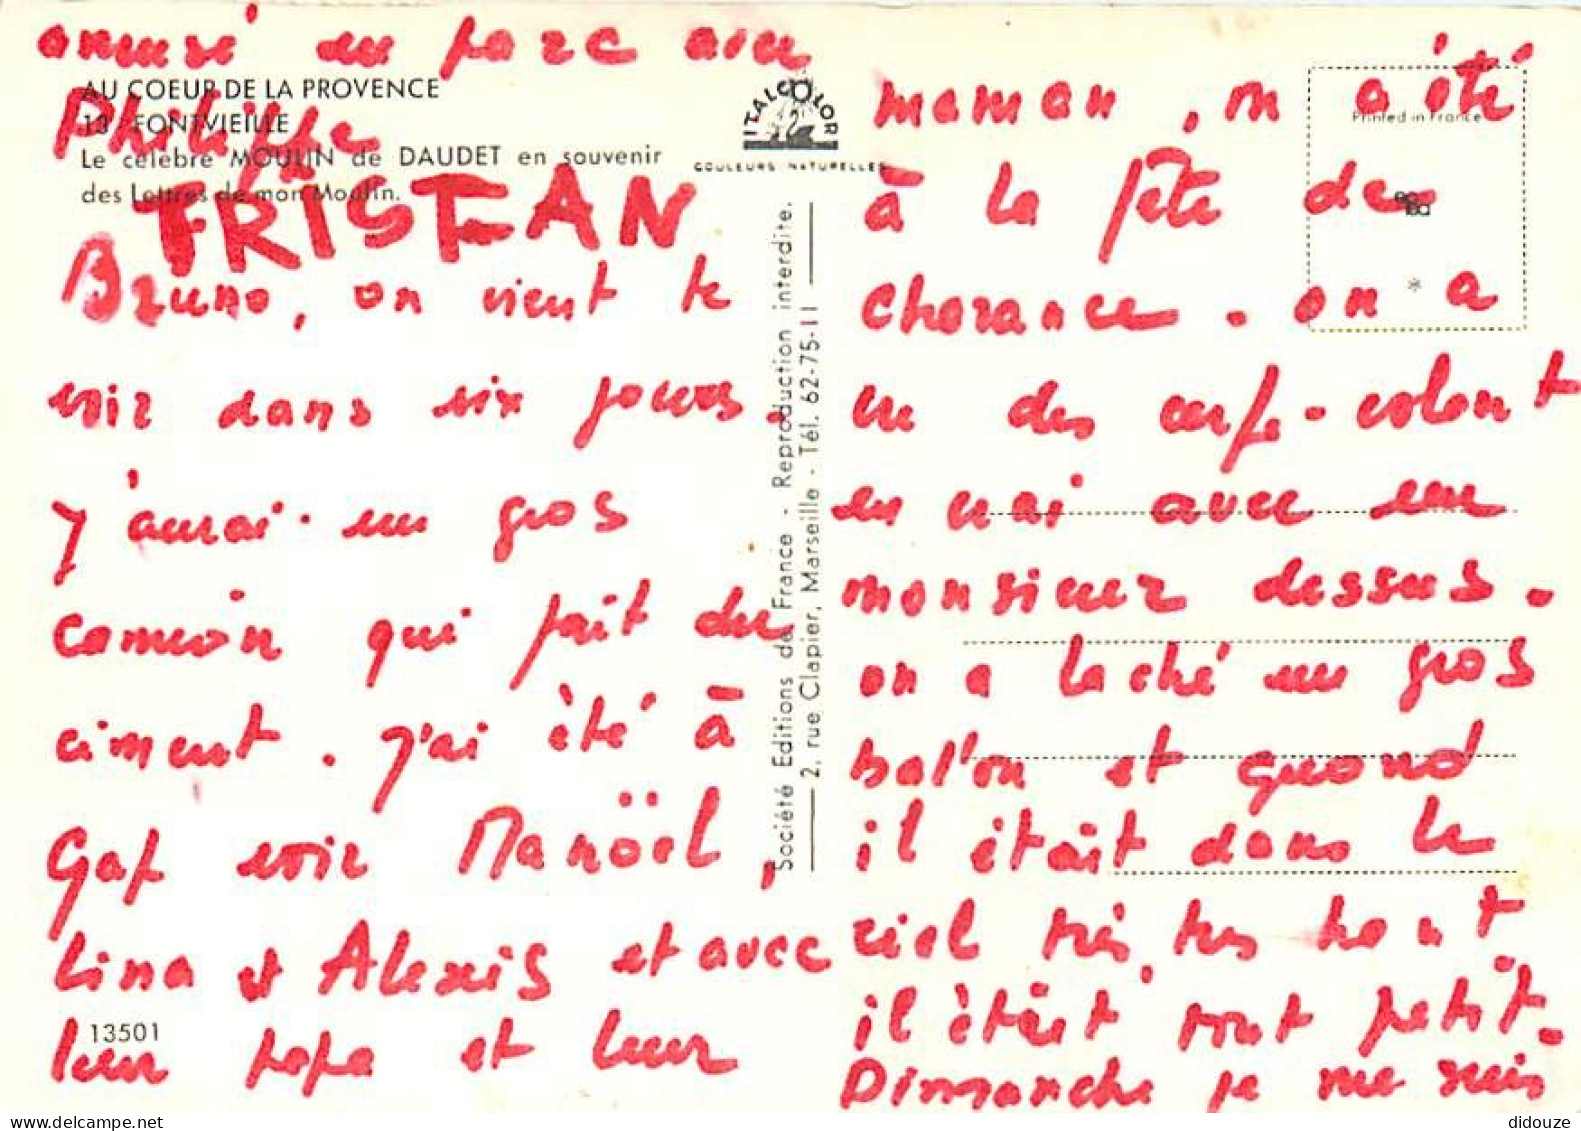 amusé au parc avec
Philippe
TRISTAN
AU COEUR DE LA PROVENCE
13 - FONTVIEILLE
Le célèbre MOULIN de DAUDET en souvenir
des Lettres de mon Moulin.
ITALCOLOR
COULEURS NATURELLES
Printed in France
Bruno, on vient te
voir dans six jours.
J'aurai un gros
camion qui fait du
ciment. J'ai été à
Gap voir Manoël,
Lina et Alexis et avec
leur papa et leur
13501
Société Editions de France - Reproduction interdite.
2, rue Clapier, Marseille - Tél. 62-75-11
maman, on a été
à la fête de
Charance. on a
vu des cerf-volant
en vrai avec un
monsieur dessus.
on a laché un gros
bal'on et quand
il était dans le
ciel très, très haut
il était tout petit.
Dimanche je me suis
didouze